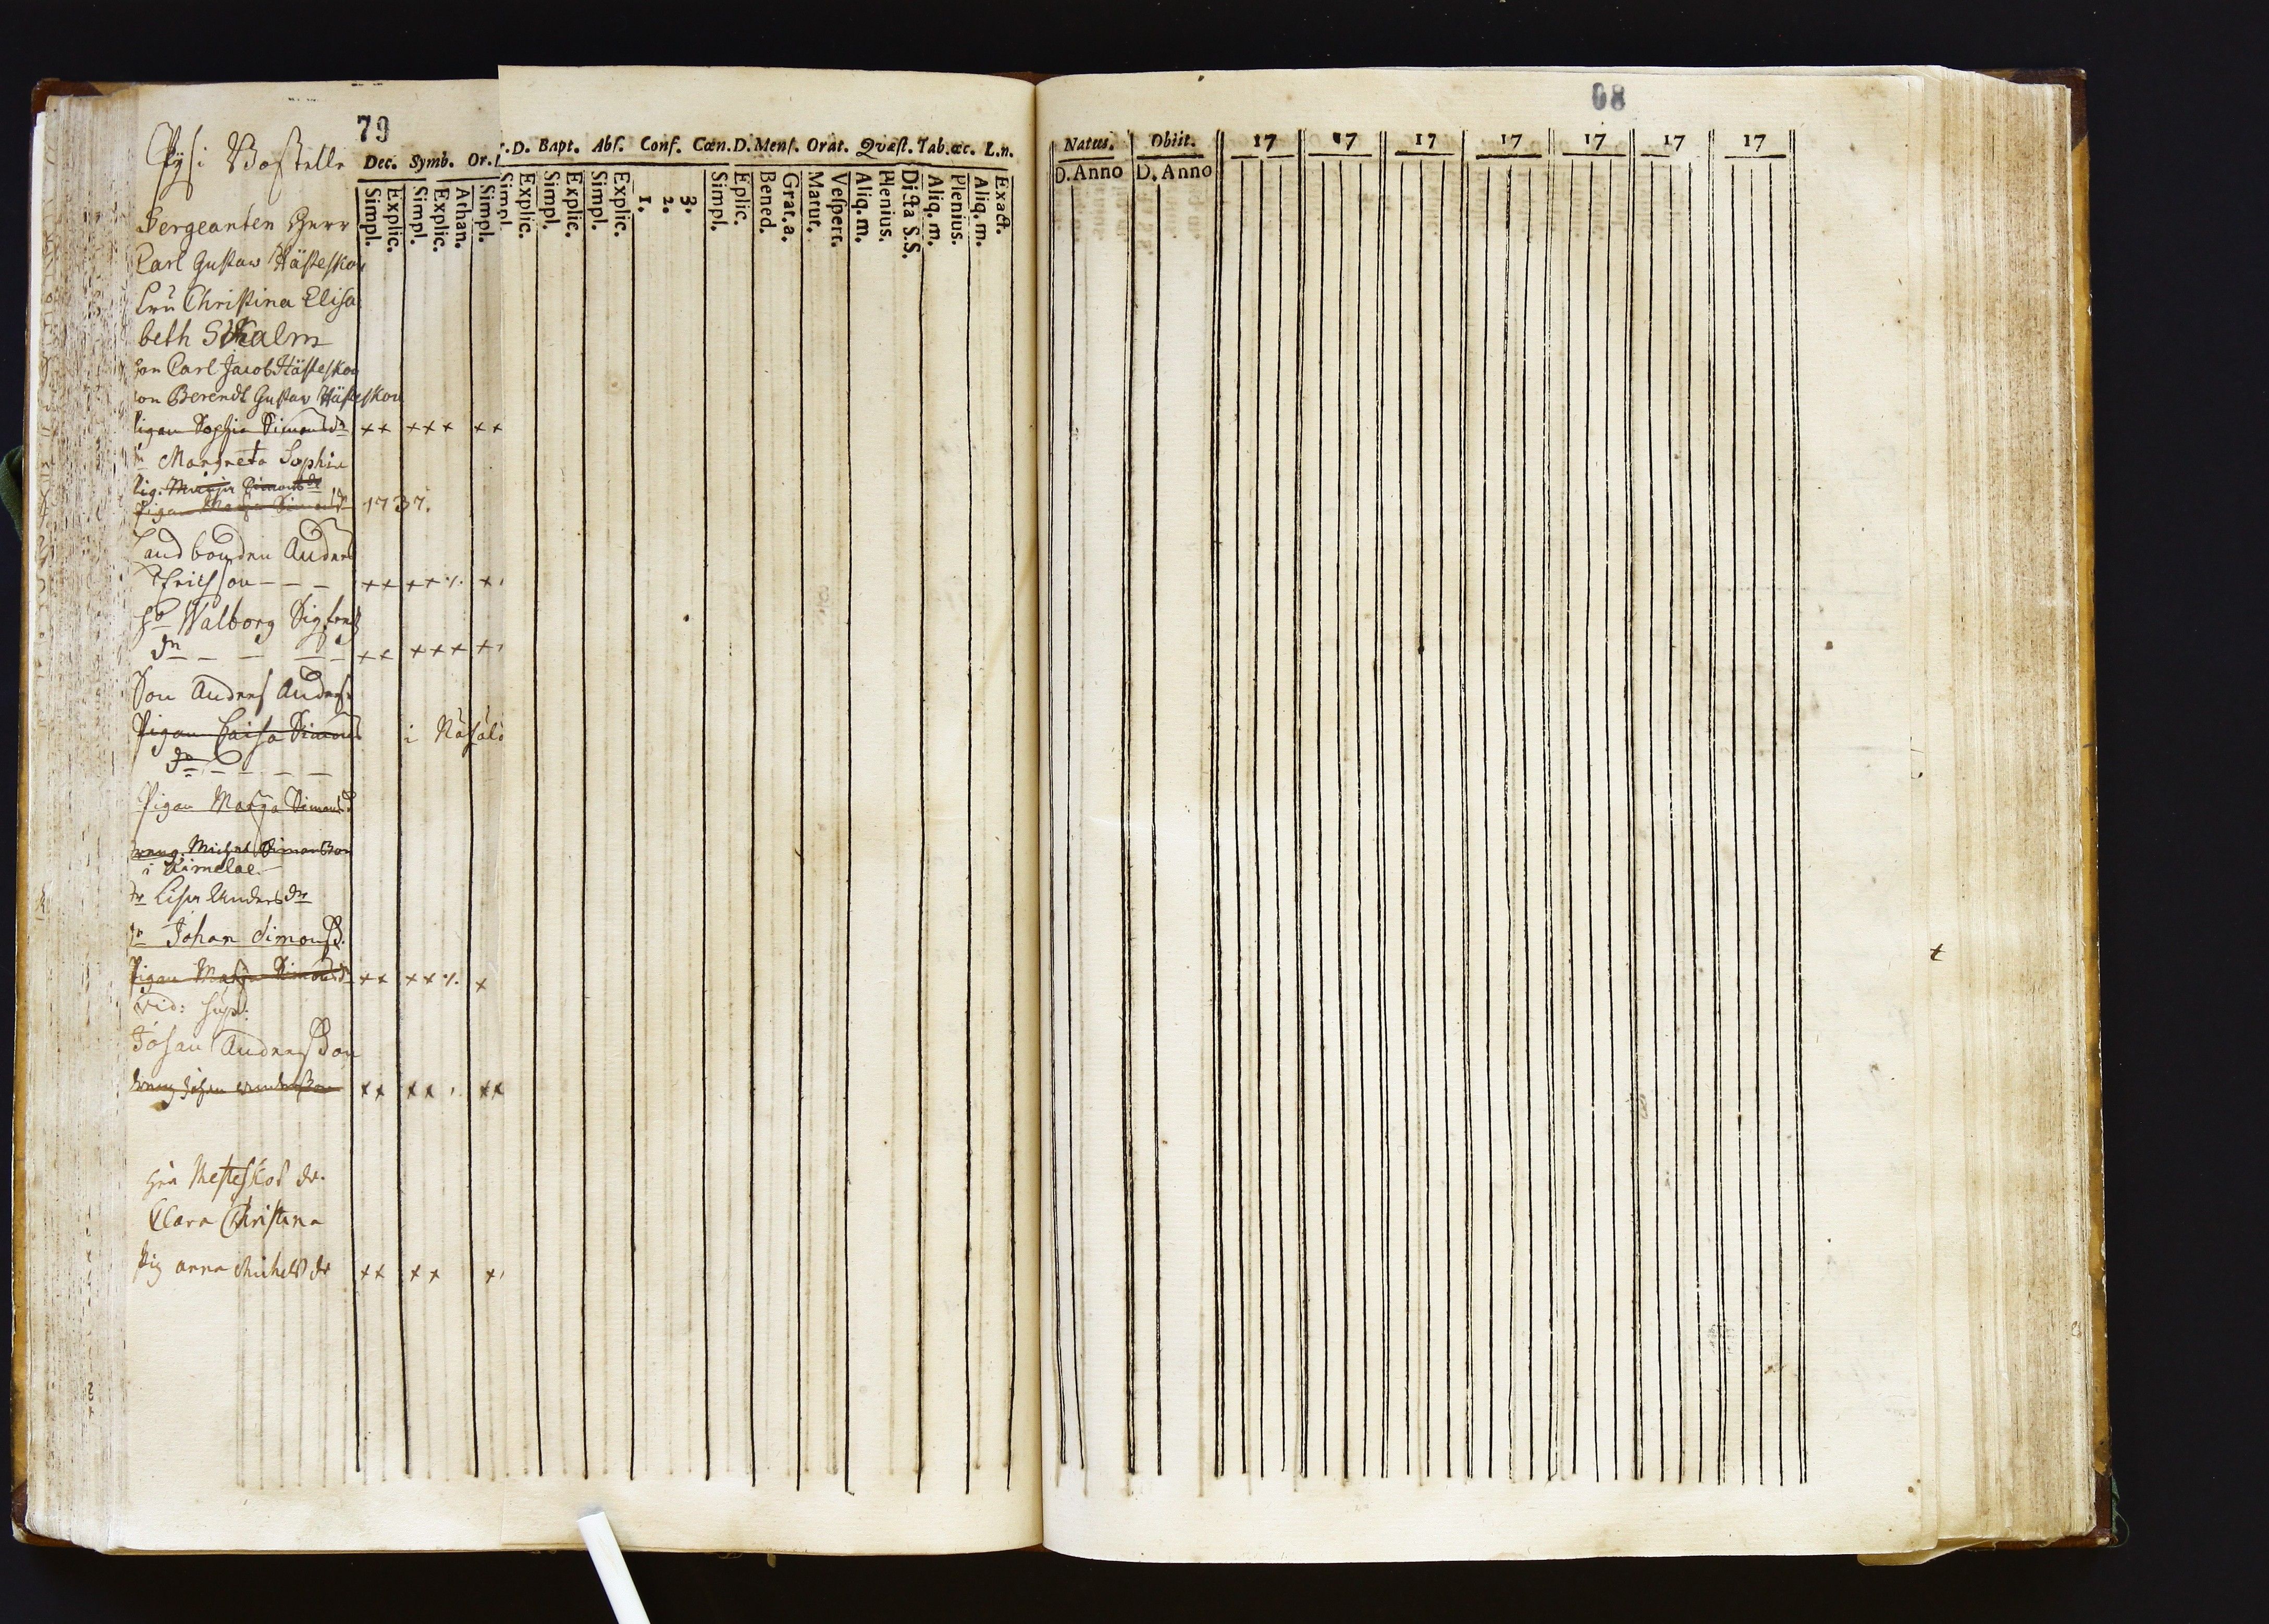 79
Pysi Bostelle
Dec. Symb. Or.
Simpl. Explic. Simpl. Explic. Athan. Simpl.
D. Bapt. Abs. Conf. Cœn. D. Mens. Orat. Qvæst. Tab. œc. L. n.
Simpl. Explic. Simpl. Explic. Simpl. Explic. 1. 2. 3. Simpl. Eplic. Bened. Grat. a. Matut. Vesperr. Aliq. m. Plenius. Dicta S. S. Aliq. m. Plenius. Aliq. m. Exact.
Sergeanten Herr
Carl Gustaw Hästesko
Fru Christina Elisa
beth Skalm
Son Carl Jacob Hästesko
son Berendt Gustav Hästeskou
Pigan Sophia Simonsdr ×× ××× ××
Margreta Sophia
Pig. Simonsdr
Pigan Simonsdr 1737.
Landbonden Anders
Ericsson - - - ×× ××·/. ×
h. Walborg Sigfreds
dr - - - - ×× ××× ×
Son Anders Anders
Pigan Caisa Simons i Näsälä
dr - - - -
Pigan Marja Simonsd
dreng. Michel Simonsson
i Kimelae
dr Lisa Andersdr
Johan Simonss.
Pigan Marja Simonsdr ×× ××·/. ×
vid: supr:
Johan Andersson
dreng Johan ×× ×× ××
Hästeskos dr.
Clara Christina
Pig anna Michelsdr ×× ×× ×
08
Natus. Obiit. 17 17 17 17 17 17 17
D. Anno D. Anno